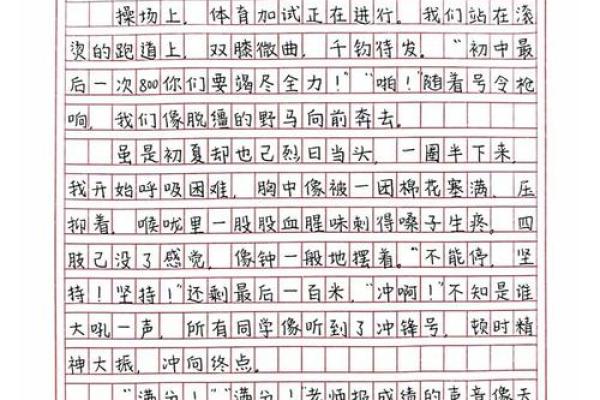 操场上，体育加试正在进行。我们站在滚
烫的跑道上，双膝微曲，千钧待发。“初中最
后一次800你们要竭尽全力！”“啪！”随着号令枪
响，我们像脱缰的野马向前奔去。
虽是初夏却也己烈日当头，一圈半下来，
我开始呼吸困难，胸中像被一团棉花塞满，压
抑着，喉咙里一股股血腥味刺得嗓子生疼。四
肢己没了感觉，像钟一般地摆着。“不能停，坚
持！坚持！”还剩最后一百米，“冲啊！”不知是谁
大吼一声，所有同学像听到了冲锋号，顿时精
神大振，冲向终点。
“满分！”“满分！”老师报成绩的声音像天